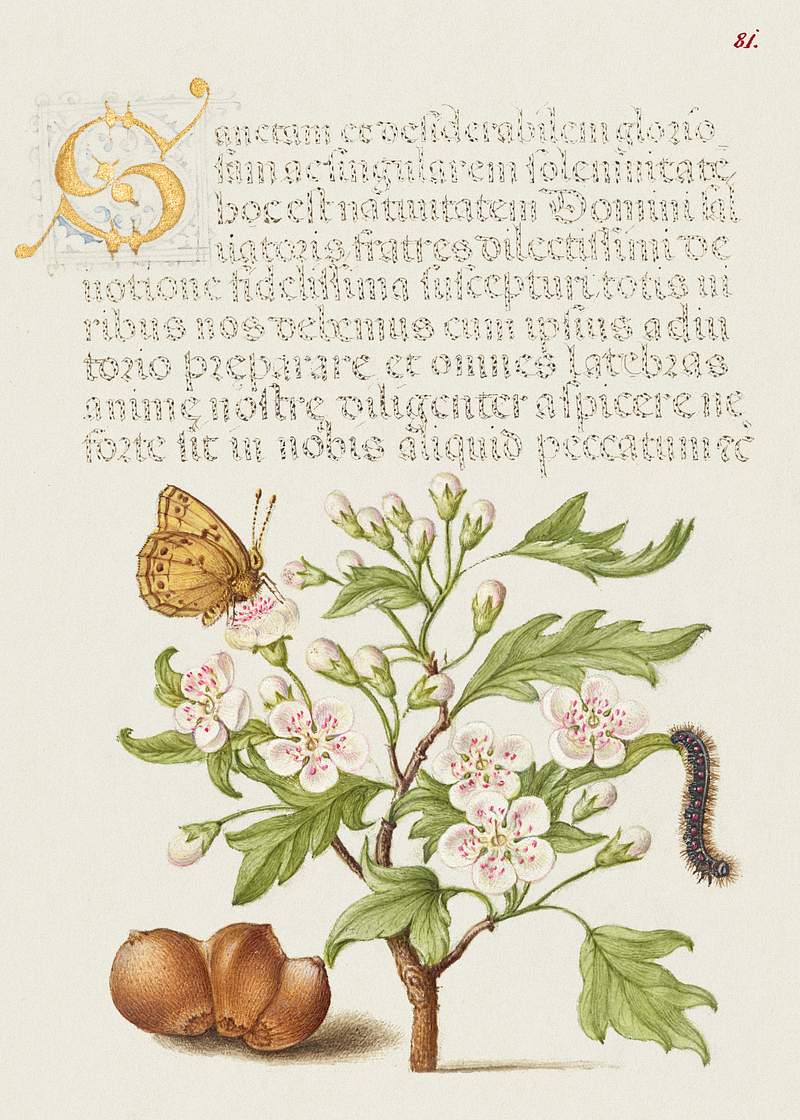 81.
Sanctam et desiderabilem glorio
sam ac singularem solemnitatē
hoc est natiuitatem Domini sal
uatoris fratres dilectissimi de
uotione fidelissima suscepturi totis ui
ribus nos debemus cum ipsius adiu
torio pręparare et omnes latebras
animę nostrę diligenter aspicere ne
forte sit in nobis aliquid peccatum ꝛc̄